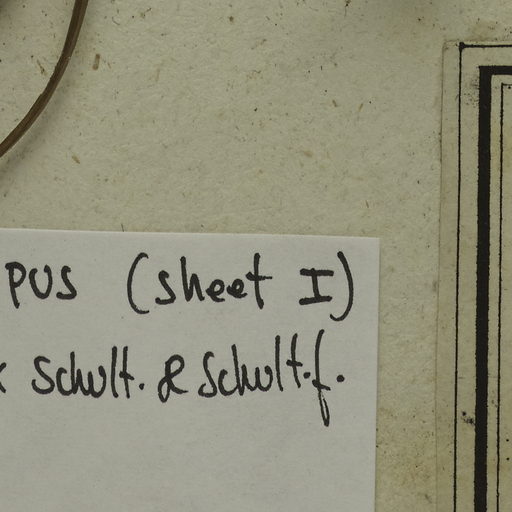 PUS (sheet I)
x Schult. & Schult.f.